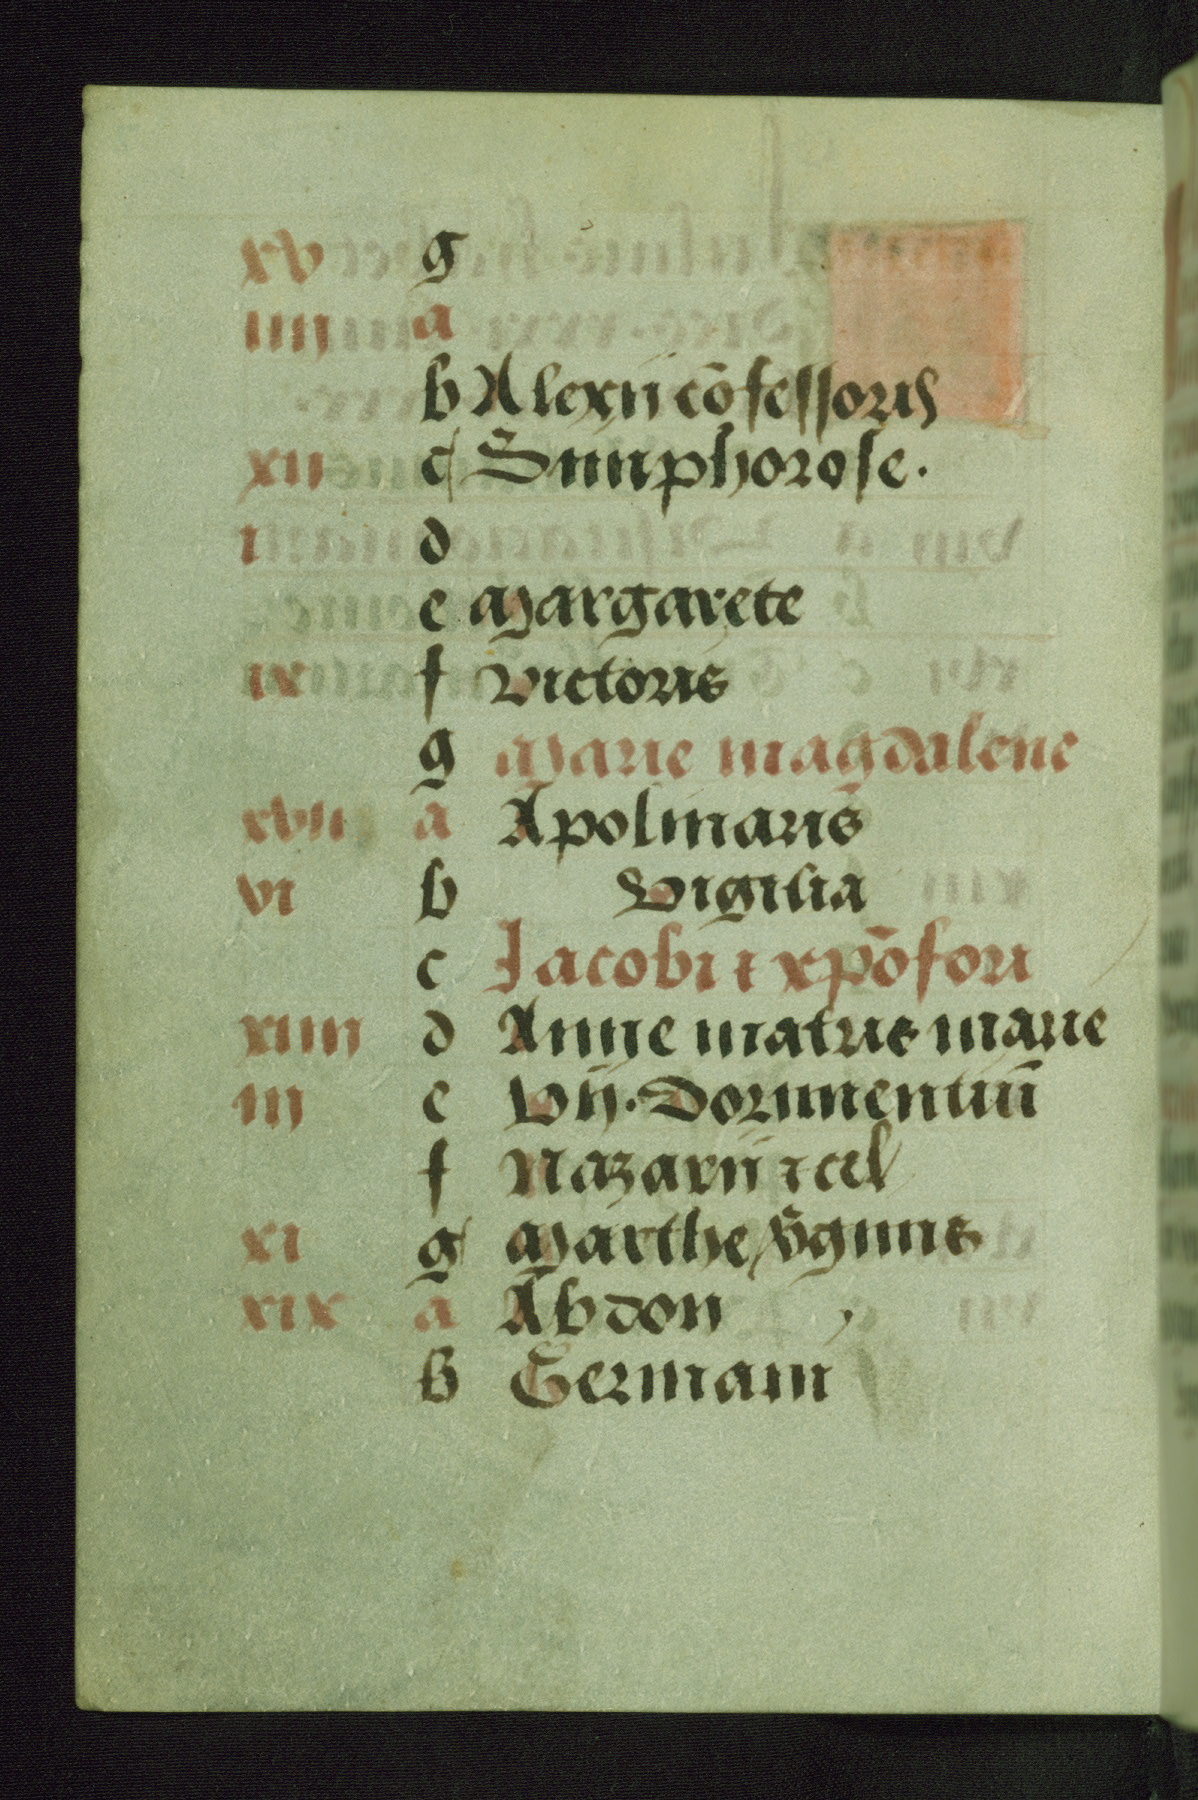 xv g
iiii a
b Alexii cōfessoris
xii c Simphorose.
i d
e Margarete
ix f victoris
g Marie magdalene
xvii a Apolinaris
vi b Vigilia
c Jacobi ⁊ xpōfori
xiiii d Anne matris marie
iii e Vii. Dormientiū
f Nazarii ⁊ cel
xi g Marthe v̄ginis
xix a Abdon
b Germani